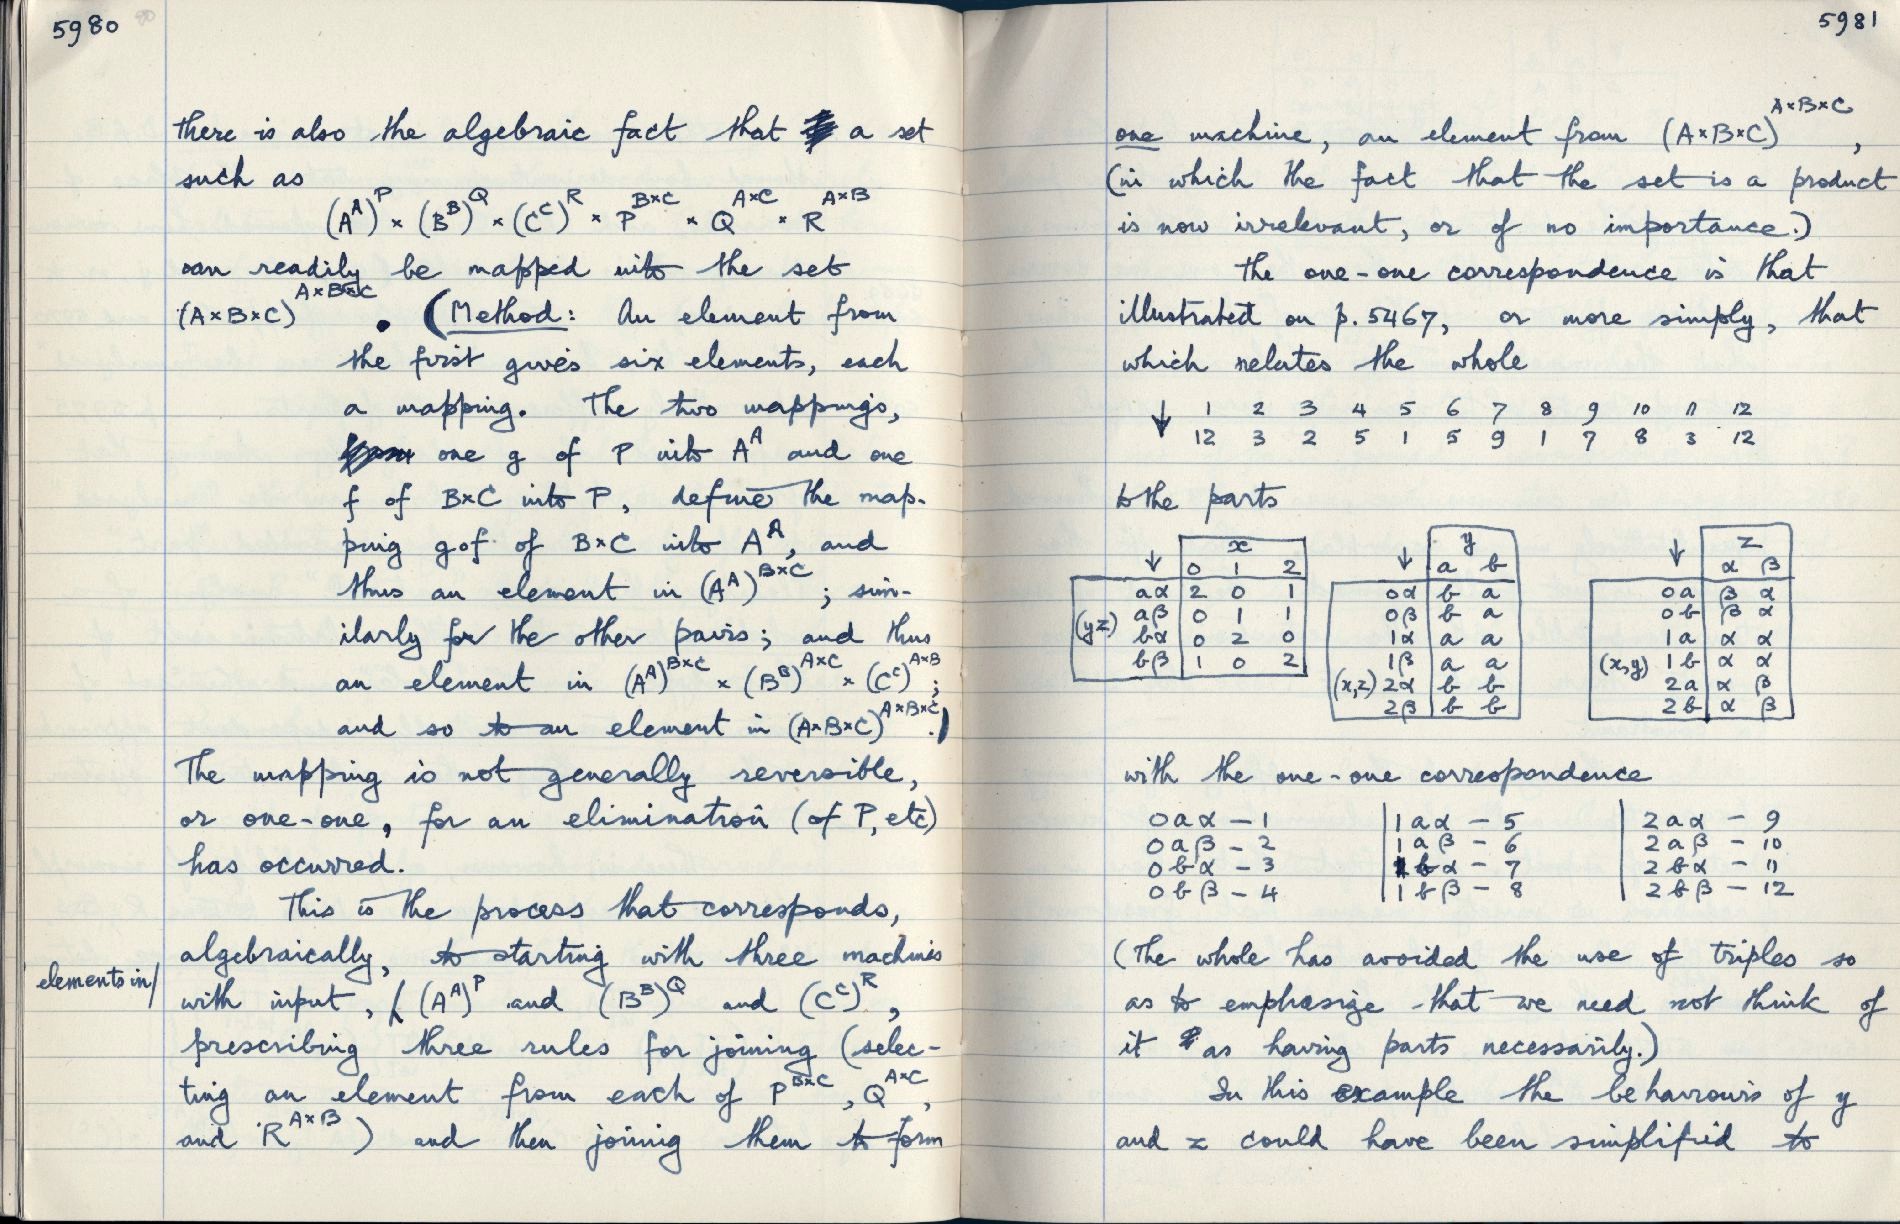 5980
there is also the algebraic fact that a set
such as
(A^A)^P × (B^B)^Q × (C^C)^R × P^{B×C} × Q^{A×C} × R^{A×B}
can readily be mapped into the set
(A×B×C)^{A×B×C}. (Method: An element from
the first gives six elements, each
a mapping. The two mappings,
one g of P into A^A and one
f of B×C into P, define the map-
ping gof of B×C into A^A, and
thus an element in (A^A)^{B×C}; sim-
ilarly for the other pairs; and thus
an element in (A^A)^{B×C} × (B^B)^{A×C} × (C^C)^{A×B};
and so to an element in (A×B×C)^{A×B×C}.)
The mapping is not generally reversible,
or one-one, for an elimination (of P, etc)
has occurred.
This is the process that corresponds,
algebraically, to starting with three machines
elements in/
with input, / (A^A)^P and (B^B)^Q and (C^C)^R,
prescribing three rules for joining (selec-
ting an element from each of P^{B×C}, Q^{A×C},
and R^{A×B}) and then joining them to form
5981
one machine, an element from (A×B×C)^{A×B×C},
(in which the fact that the set is a product
is now irrelevant, or of no importance.)
The one-one correspondence is that
illustrated on p.5467, or more simply, that
which relates the whole
↓ 1 2 3 4 5 6 7 8 9 10 11 12
12 3 2 5 1 5 9 1 7 8 3 12
to the parts
x
↓ 0 1 2
aα 2 0 1
(yz) aβ 0 1 1
bα 0 2 0
bβ 1 0 2
y
↓ a b
0α b a
0β b a
1α a a
1β a a
(x,z) 2α b b
2β b b
z
↓ α β
0a β α
0b β α
1a α α
(x,y) 1b α α
2a α β
2b α β
with the one-one correspondence
0aα – 1 | 1aα – 5 | 2aα – 9
0aβ – 2 | 1aβ – 6 | 2aβ – 10
0bα – 3 | 1bα – 7 | 2bα – 11
0bβ – 4 | 1bβ – 8 | 2bβ – 12
(The whole has avoided the use of triples so
as to emphasize that we need not think of
it as having parts necessarily.)
In this example the behaviours of y
and z could have been simplified to